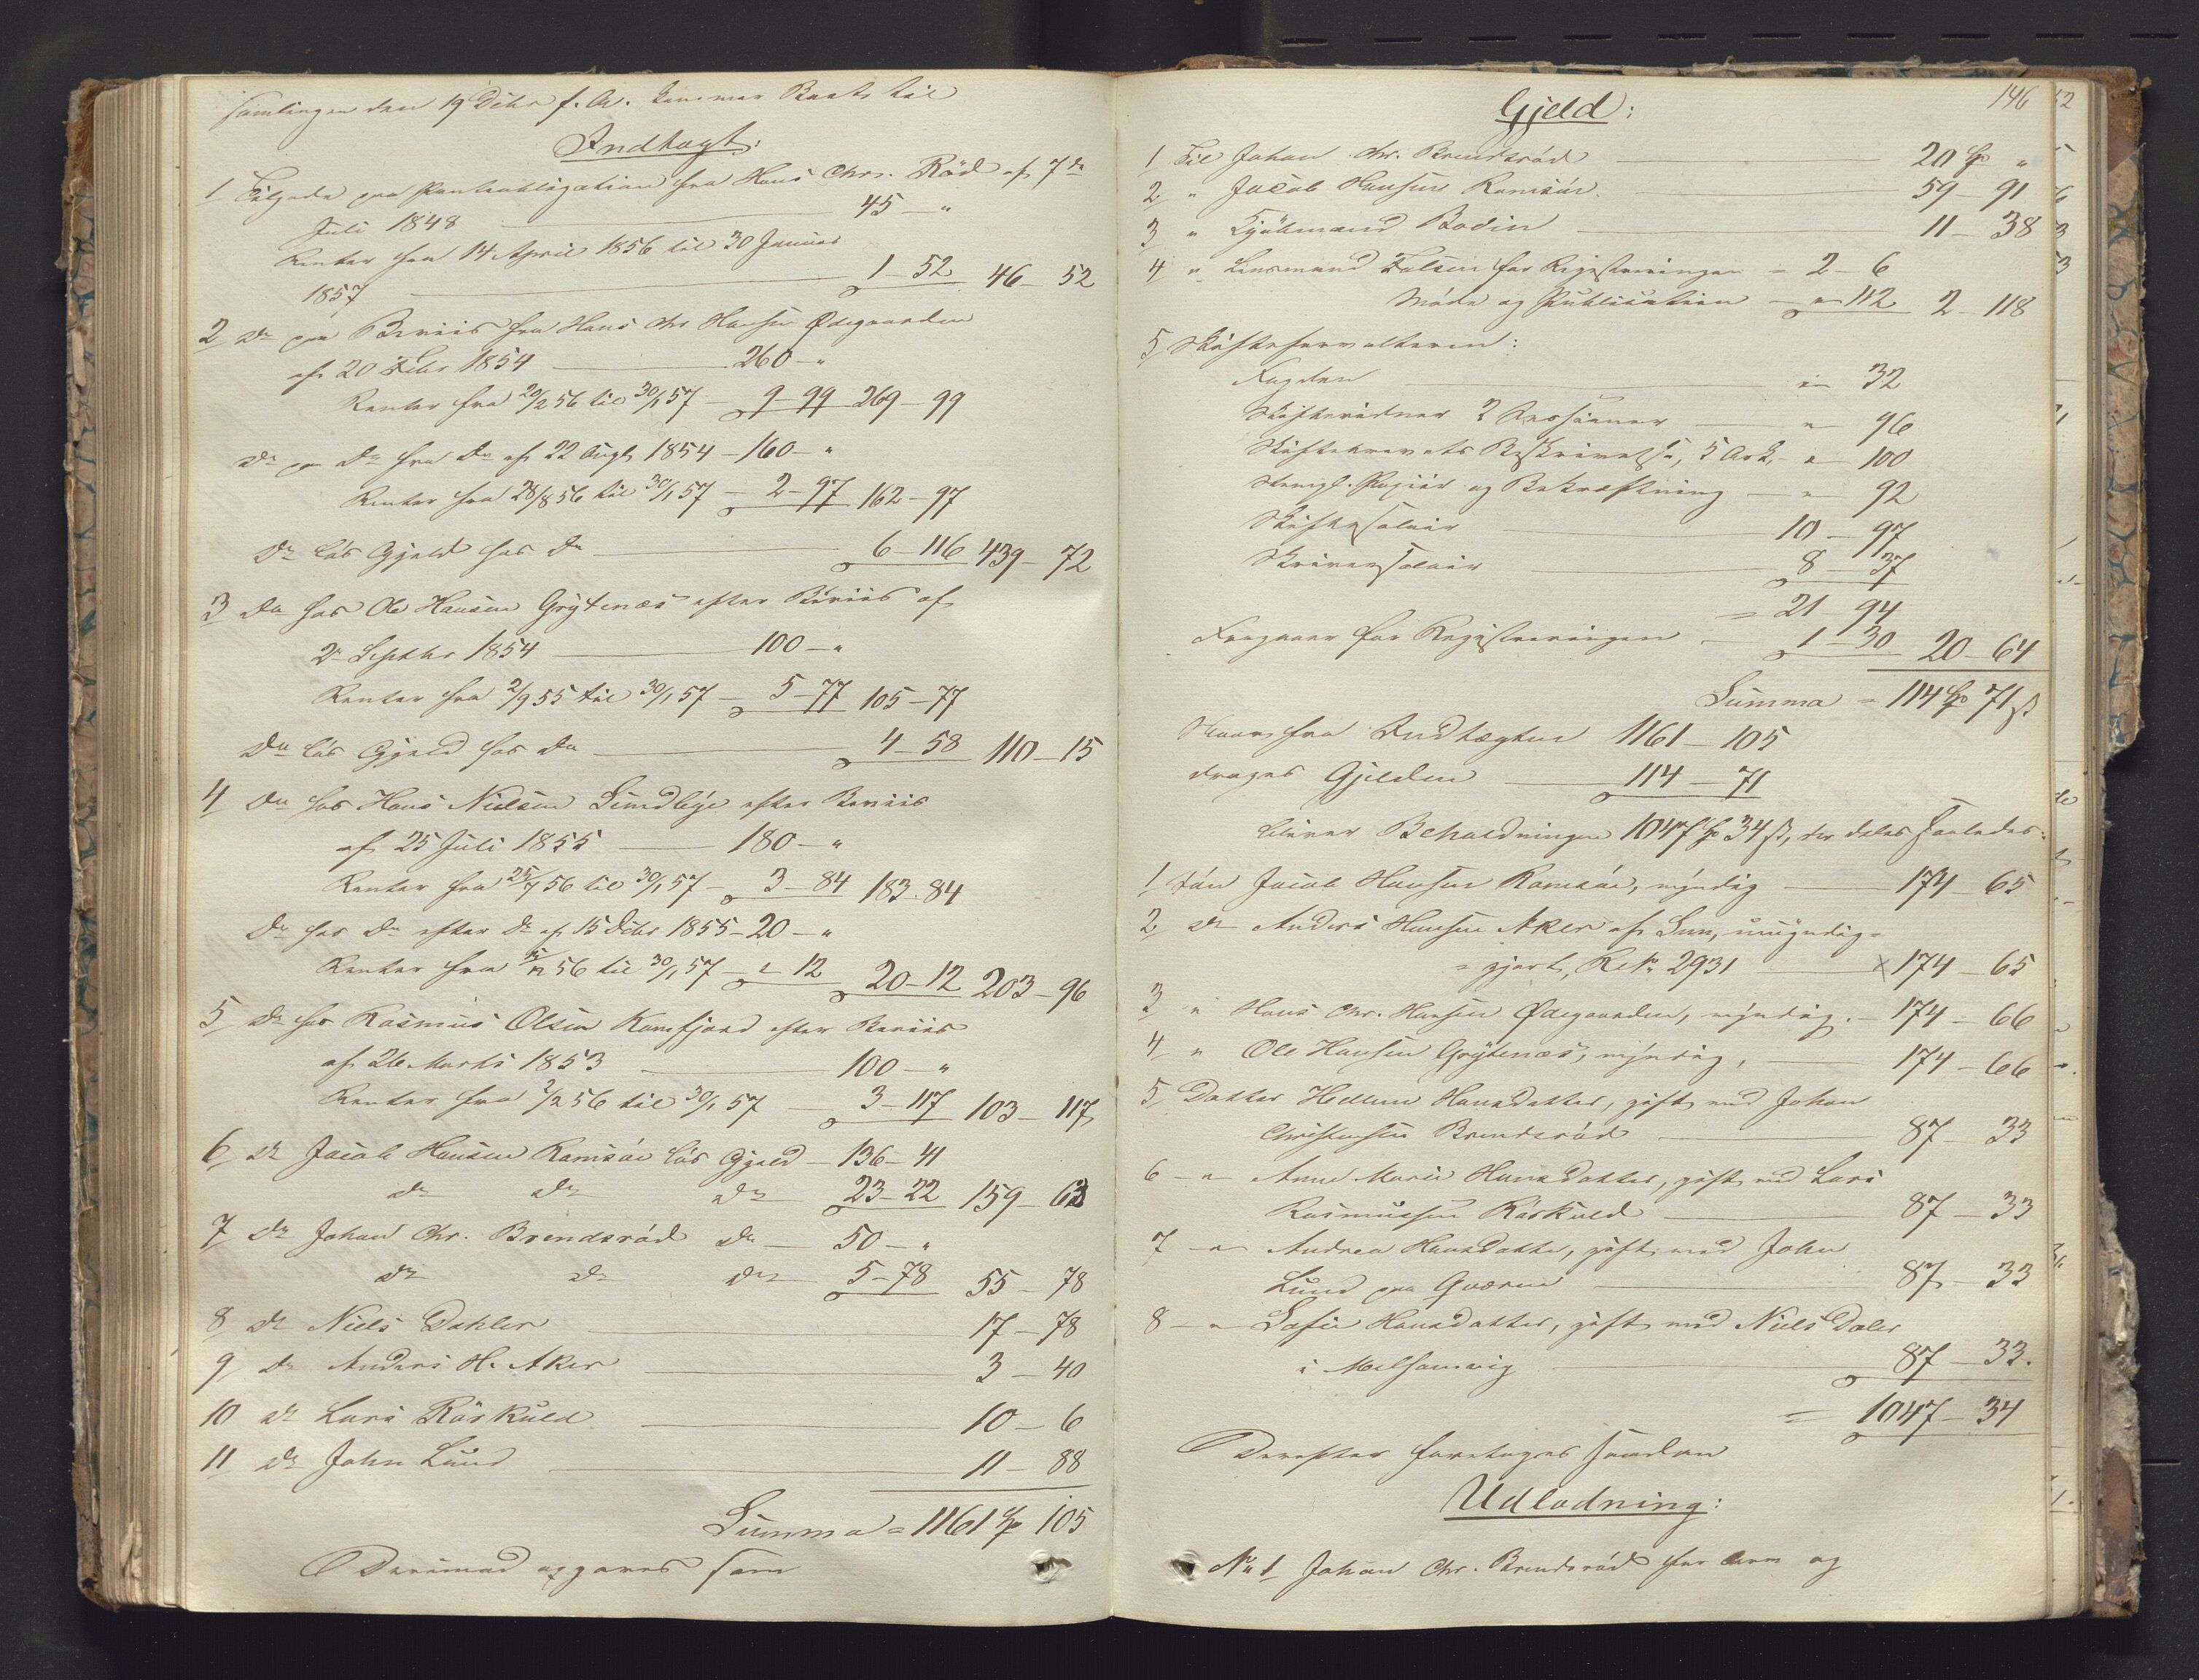 Samlingen den 19 Debr f. A. kommer Boets til
Indtægt:
1 Tilgode paa Pantobligation fra Hans Chr. Röd af 7de
Juli 1848 45 — "
Renter fra 14 April 1856 til 30 Januar
1857 1 — 52 46 — 52
2 Do paa Beviis fra Hans Chr Hansen Ødegaarden
af 20 Febr 1854 260 — "
Renter fra 20/2 56 til 30/1 57 — 9 — 99 269 — 99
Do paa Do fra Do af 22 Augt 1854 — 160 — "
Renter fra 28/8 56 til 30/1 57 — 2 — 97 162 — 97
Do løs Gjeld hos Do 6 — 116 439 — 72
3 Do hos Ole Hansen Grytenæs efter Beviis af
2 Septbr 1854 100 — "
Renter fra 2/9 55 til 30/1 57 — 5 — 77 105 — 77
Do løs Gjeld hos Do 4 — 58 110 — 15
4 Do hos Hans Nielsen Sundbye efter Beviis
af 25 Juli 1855 180 — "
Renter fra 25/7 56 til 30/1 57 — 3 — 84 183 . 84
Do hos Do efter Do af 15 Debr 1855 — 20 — "
Renter fra 15/12 56 til 30/1 57 — " 12 20 — 12 203 — 96
5 Do hos Rasmus Olsen Kamfjord efter Beviis
af 26 Marts 1853 100 — "
Renter fra 2/2 56 til 30/1 57 3 — 117 103 — 117
6 Do Jacob Hansen Ramsöe løs Gjeld — 136 — 41
Do Do Do 23 — 22 159 — 63
7 Do Johan Chr. Brendsröd Do — 50 — "
Do Do Do 5 — 78 55 — 78
8 Do Niels Dahler 17 — 78
9 Do Anders H. Aker 3 — 40
10 Do Lars Röskuld 10 — 6
11 Do John Lund 11 — 88
Summa = 1161 Sp 105
Derimod opgaves som
146
Gjeld:
1 Til Johan Chr. Brendsröd 20 Sp "
2 " Jacob Hansen Ramsöe 59 — 91
3 " Kjöbmand Bodin 11 — 38
4 " Lensmand Falsen for Registreringen — 2 — 6
Møde og Publication — " 112 2 — 118
5 Skifteforvalteren:
Fogden " 32
Skifteridner 2 Sessioner " 96
Skiftebrevets Beskrivelse, 5 Ark, " 100
Stempl. Papiir og Bekræftning " 92
Skiftesalair 10 — 97
Skriversalair 8 — 37
= 21 — 94
Fragaaer for Registreringen — 1 — 30 20 — 64
Summa = 114 Sp 71 ß
Naar fra Indtægten 1161 — 105
drages Gjelden 114 — 71
bliver Beholdningen 1047 Sp 34 ß, der deles saaledes:
1 Søn Jacob Hansen Ramsöe, myndig 174 — 65
2 Do Anders Hansen Aker af Sem, umyndig=
= gjort, Rek: 2931 x 174 — 65
3 " Hans Chr. Hansen Ødegaarden, myndig. — 174 — 66
4 " Ole Hansen Grytenæs, myndig, 174 — 66
5 Datter Hellene Hansdatter, gift med Johan
Christensen Brendsröd 87 — 33
6 — " Anne Marie Hansdatter, gift med Lars
Rasmussen Röskuld 87 — 33
7 — " Andrea Hansdatter, gift med John
Lund paa Qværen 87 — 33
8 — " Sofie Hansdatter, gift med Niels Daler
i Melsomvig 87 — 33.
= 1047 — 34
Derefter foretoges saadan
Udlodning:
No 1 Johan Chr. Brendsröd for Arv og